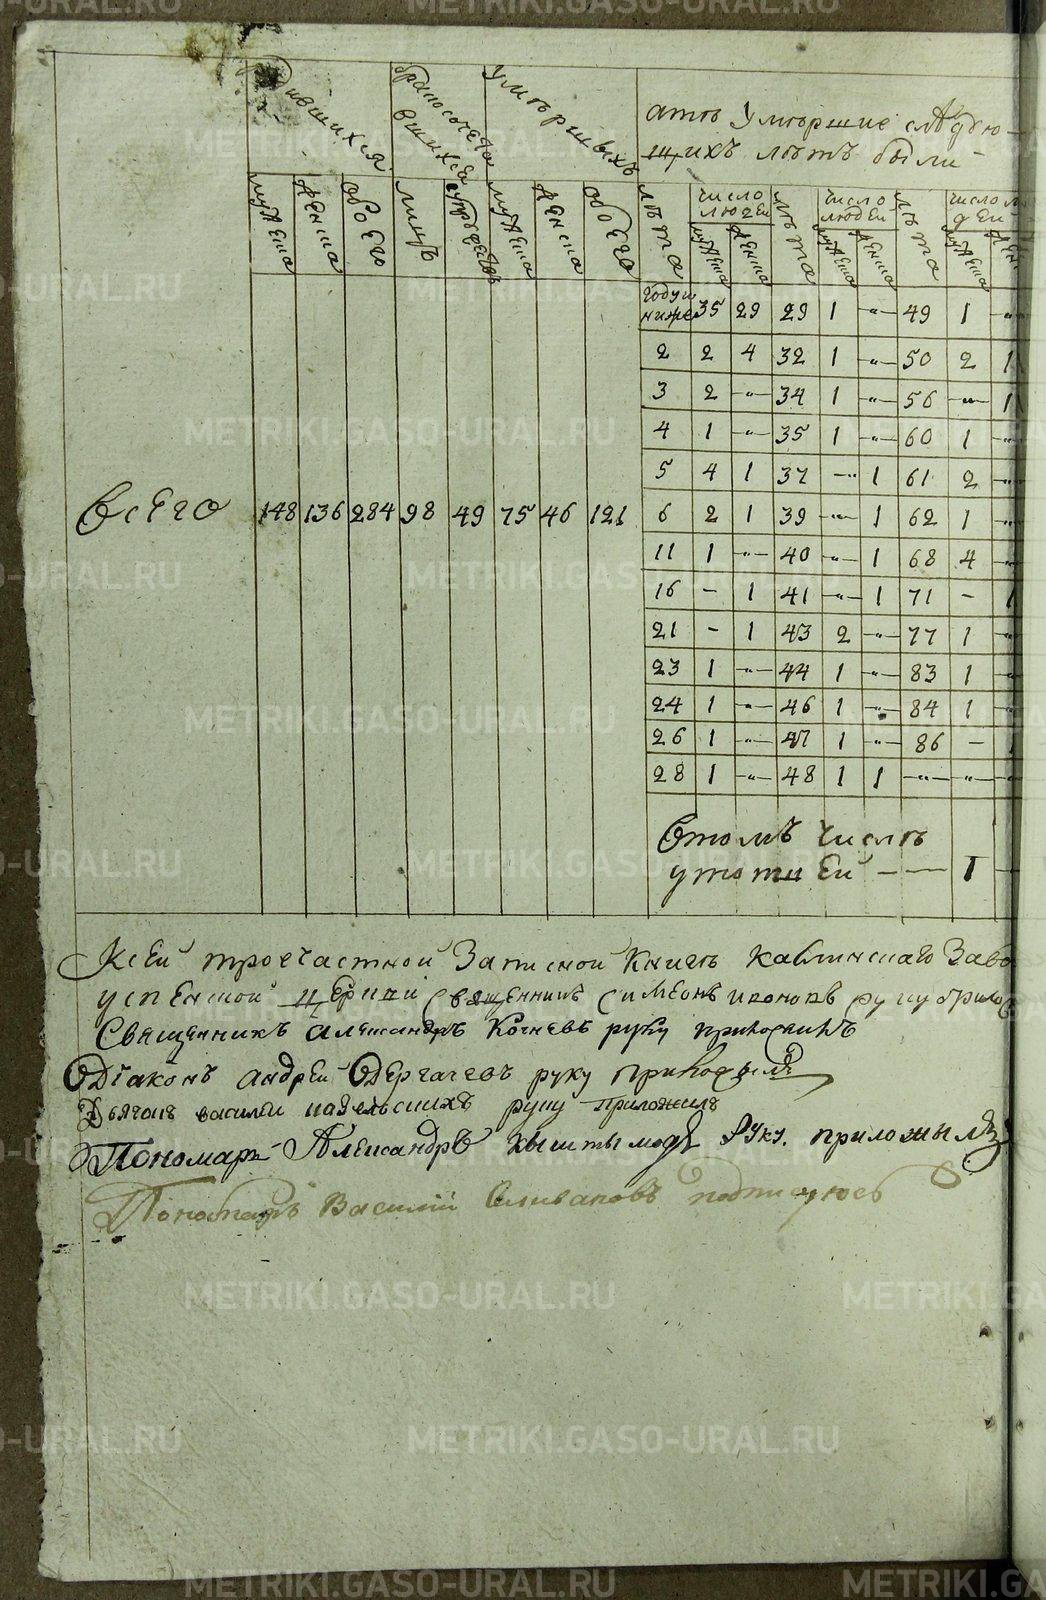 METRIKI.GASO-URAL.RU
бракосочета
вшихся
Умѣршыхъ
Умѣршие слѣдую
щихъ лѣтъ были
мужеска женска обоего лицъ мужеска женска обоего лѣта число людей лѣта число людей лѣта число
мужеска женска мужеска женска мужеска
году и ниже 35 29 29 1 -"- 49 1 -"-
2 2 4 32 1 -"- 50 2 1
3 2 -"- 34 1 -"- 56 -"- 1
4 1 -"- 35 1 -"- 60 1 -"-
5 4 1 37 -"- 1 61 2 -"-
Всего 148 136 284 98 49 75 46 121 6 2 1 39 -"- 1 62 1 -"-
11 1 -"- 40 -"- 1 68 4 -"-
16 - 1 41 -"- 1 71 - 1
21 - 1 43 2 -"- 77 1 -"-
23 1 -"- 44 1 -"- 83 1 -"-
24 1 -"- 46 1 -"- 84 1 -"-
26 1 -"- 47 1 -"- 86 - 1
28 1 -"- 48 1 1 -"- -"-
Втомъ числѣ
- - 1
Ксей троечастной Записной Книгѣ Заво
успенской церкви Священникъ Симеонъ руку
Священникъ александръ Кочневъ руку
Диаконъ андрей Дергачевъ руку приложилъ
василеи руку приложилъ
Пономарь Александръ руку приложылъ
Пономарь Василій Селивановъ подписуюсь